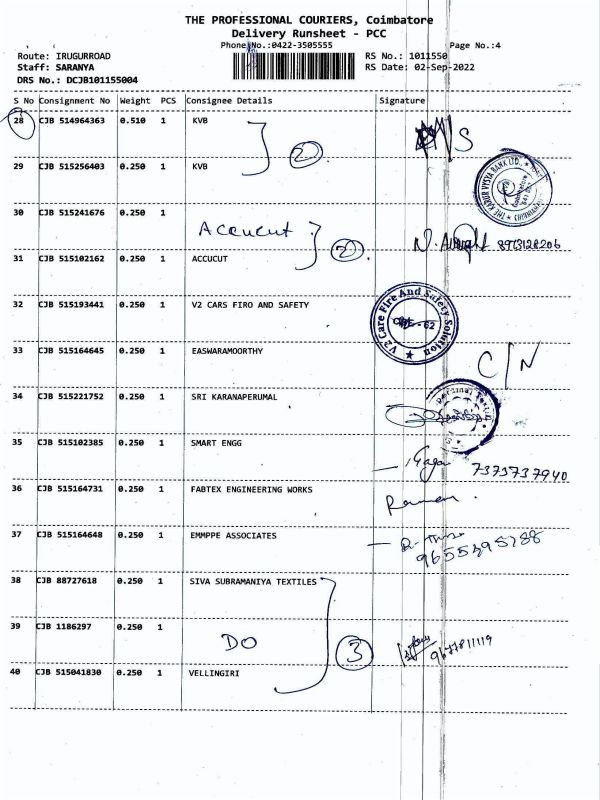 THE PROFESSIONAL COURIERS, Coimbatore
Delivery Runsheet - PCC
Phone No.:0422-3505555 Page No.:4
Route: IRUGURROAD RS No.: 1011550
Staff: SARANYA RS Date: 02-Sep-2022
DRS No.: DCJB101155004
S No Consignment No Weight PCS Consignee Details Signature
28 CJB 514964363 0.510 1 KVB
2
29 CJB 515256403 0.250 1 KVB
THE KARUR VYSYA BANK LTD.,
30 CJB 515241676 0.250 1
Accucut 2 8973128206
31 CJB 515102162 0.250 1 ACCUCUT
32 CJB 515193441 0.250 1 V2 CARS FIRO AND SAFETY
V2 Care Fire And Safety Solution
33 CJB 515164645 0.250 1 EASWARAMOORTHY C/N
34 CJB 515221752 0.250 1 SRI KARANAPERUMAL
35 CJB 515102385 0.250 1 SMART ENGG
7373737940
36 CJB 515164731 0.250 1 FABTEX ENGINEERING WORKS Raman.
37 CJB 515164648 0.250 1 EMMPPE ASSOCIATES
38 CJB 88727618 0.250 1 SIVA SUBRAMANIYA TEXTILES
39 CJB 1186297 0.250 1 DO 3 9677811119
40 CJB 515041830 0.250 1 VELLINGIRI